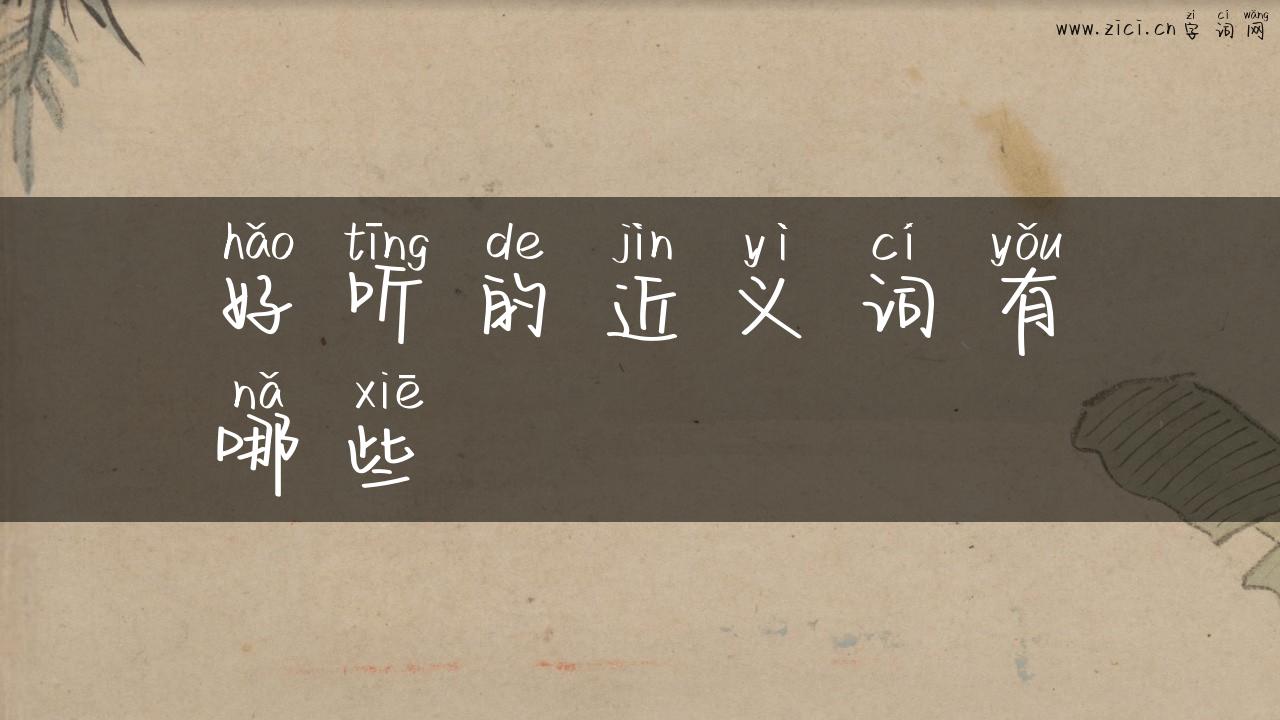 zì cí wǎng
www.zici.cn 字词网
hǎo tīng de jìn yì cí yǒu
好听的近义词有
nǎ xiē
哪些